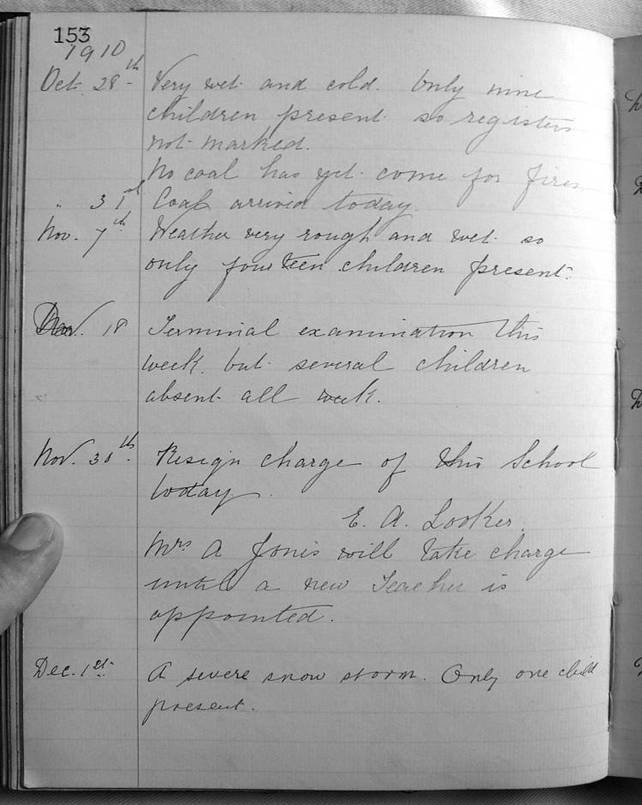 153
1910
Oct. 28th Very wet and cold. Only nine
children present so registers
not marked.
No coal has yet come for fires
" 31st Coal arrived today.
Nov. 7th Weather very rough and wet so
only fourteen children present.
Nov. 18 Terminal examination this
week, but several children
absent all week.
Nov. 30th Resign charge of this School
today.
E. A. Looker.
Mrs A Jones will take charge
until a new Teacher is
appointed.
Dec. 1st. A severe snow storm. Only one child
present.